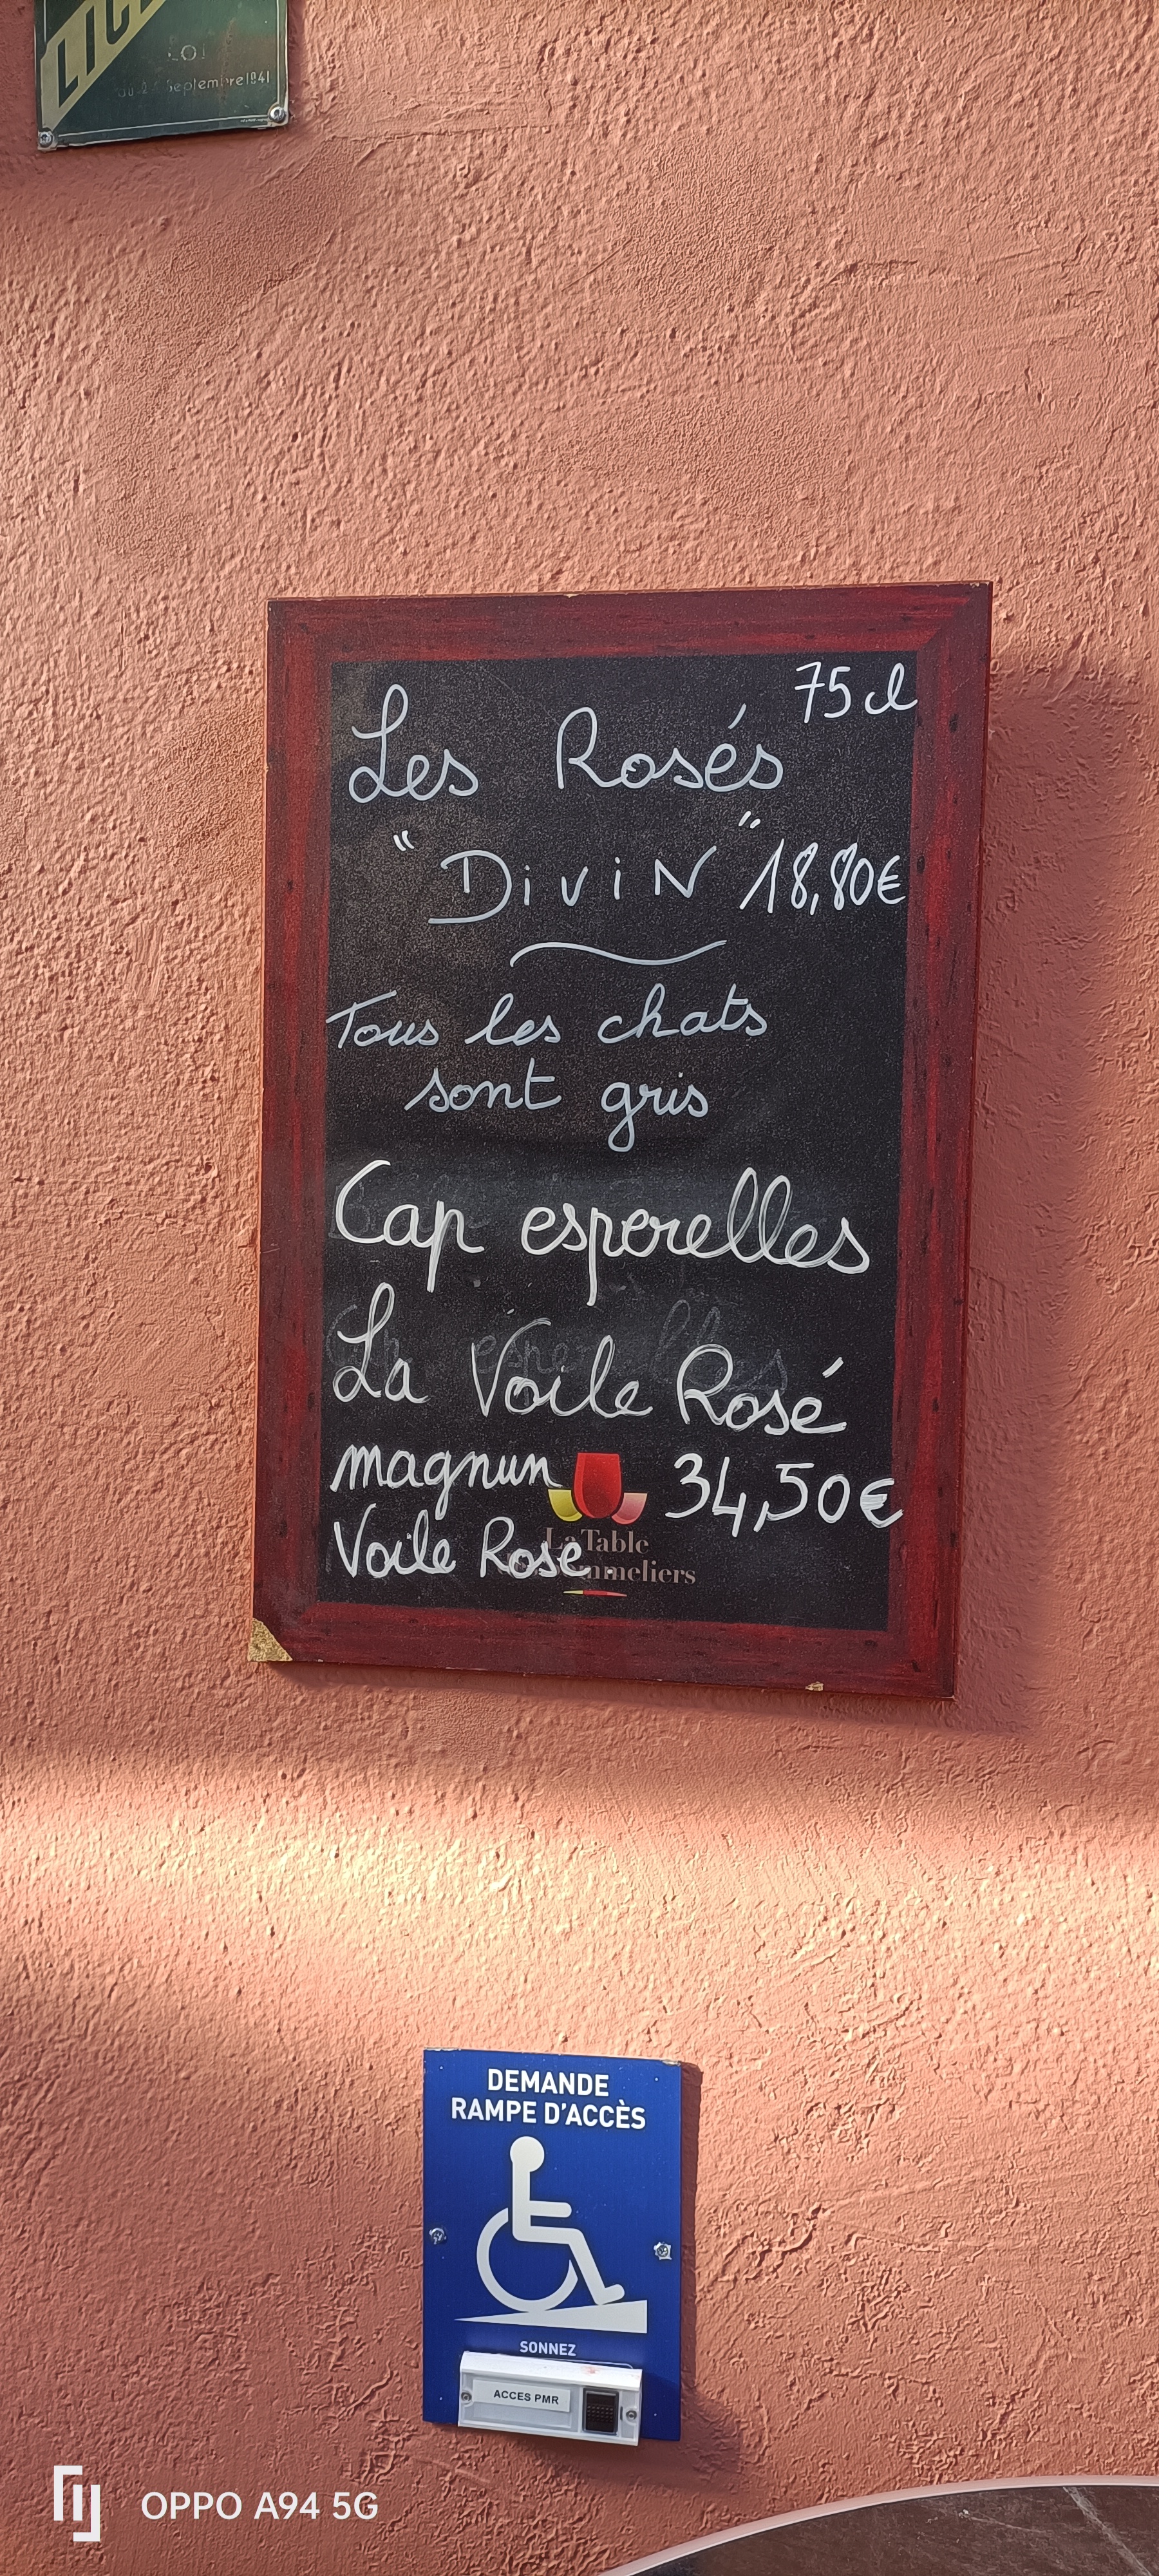 LOI
Septembre 1941
75 cl
Les Rosés
"DiviN" 18,80€
Tous les chats
sont gris
Cap esperelles
La Voile Rosé
magnun 34,50€
Voile Rose.
La Table
mmeliers
DEMANDE
RAMPE D'ACCÈS
SONNEZ
ACCES PMR
OPPO A94 5G